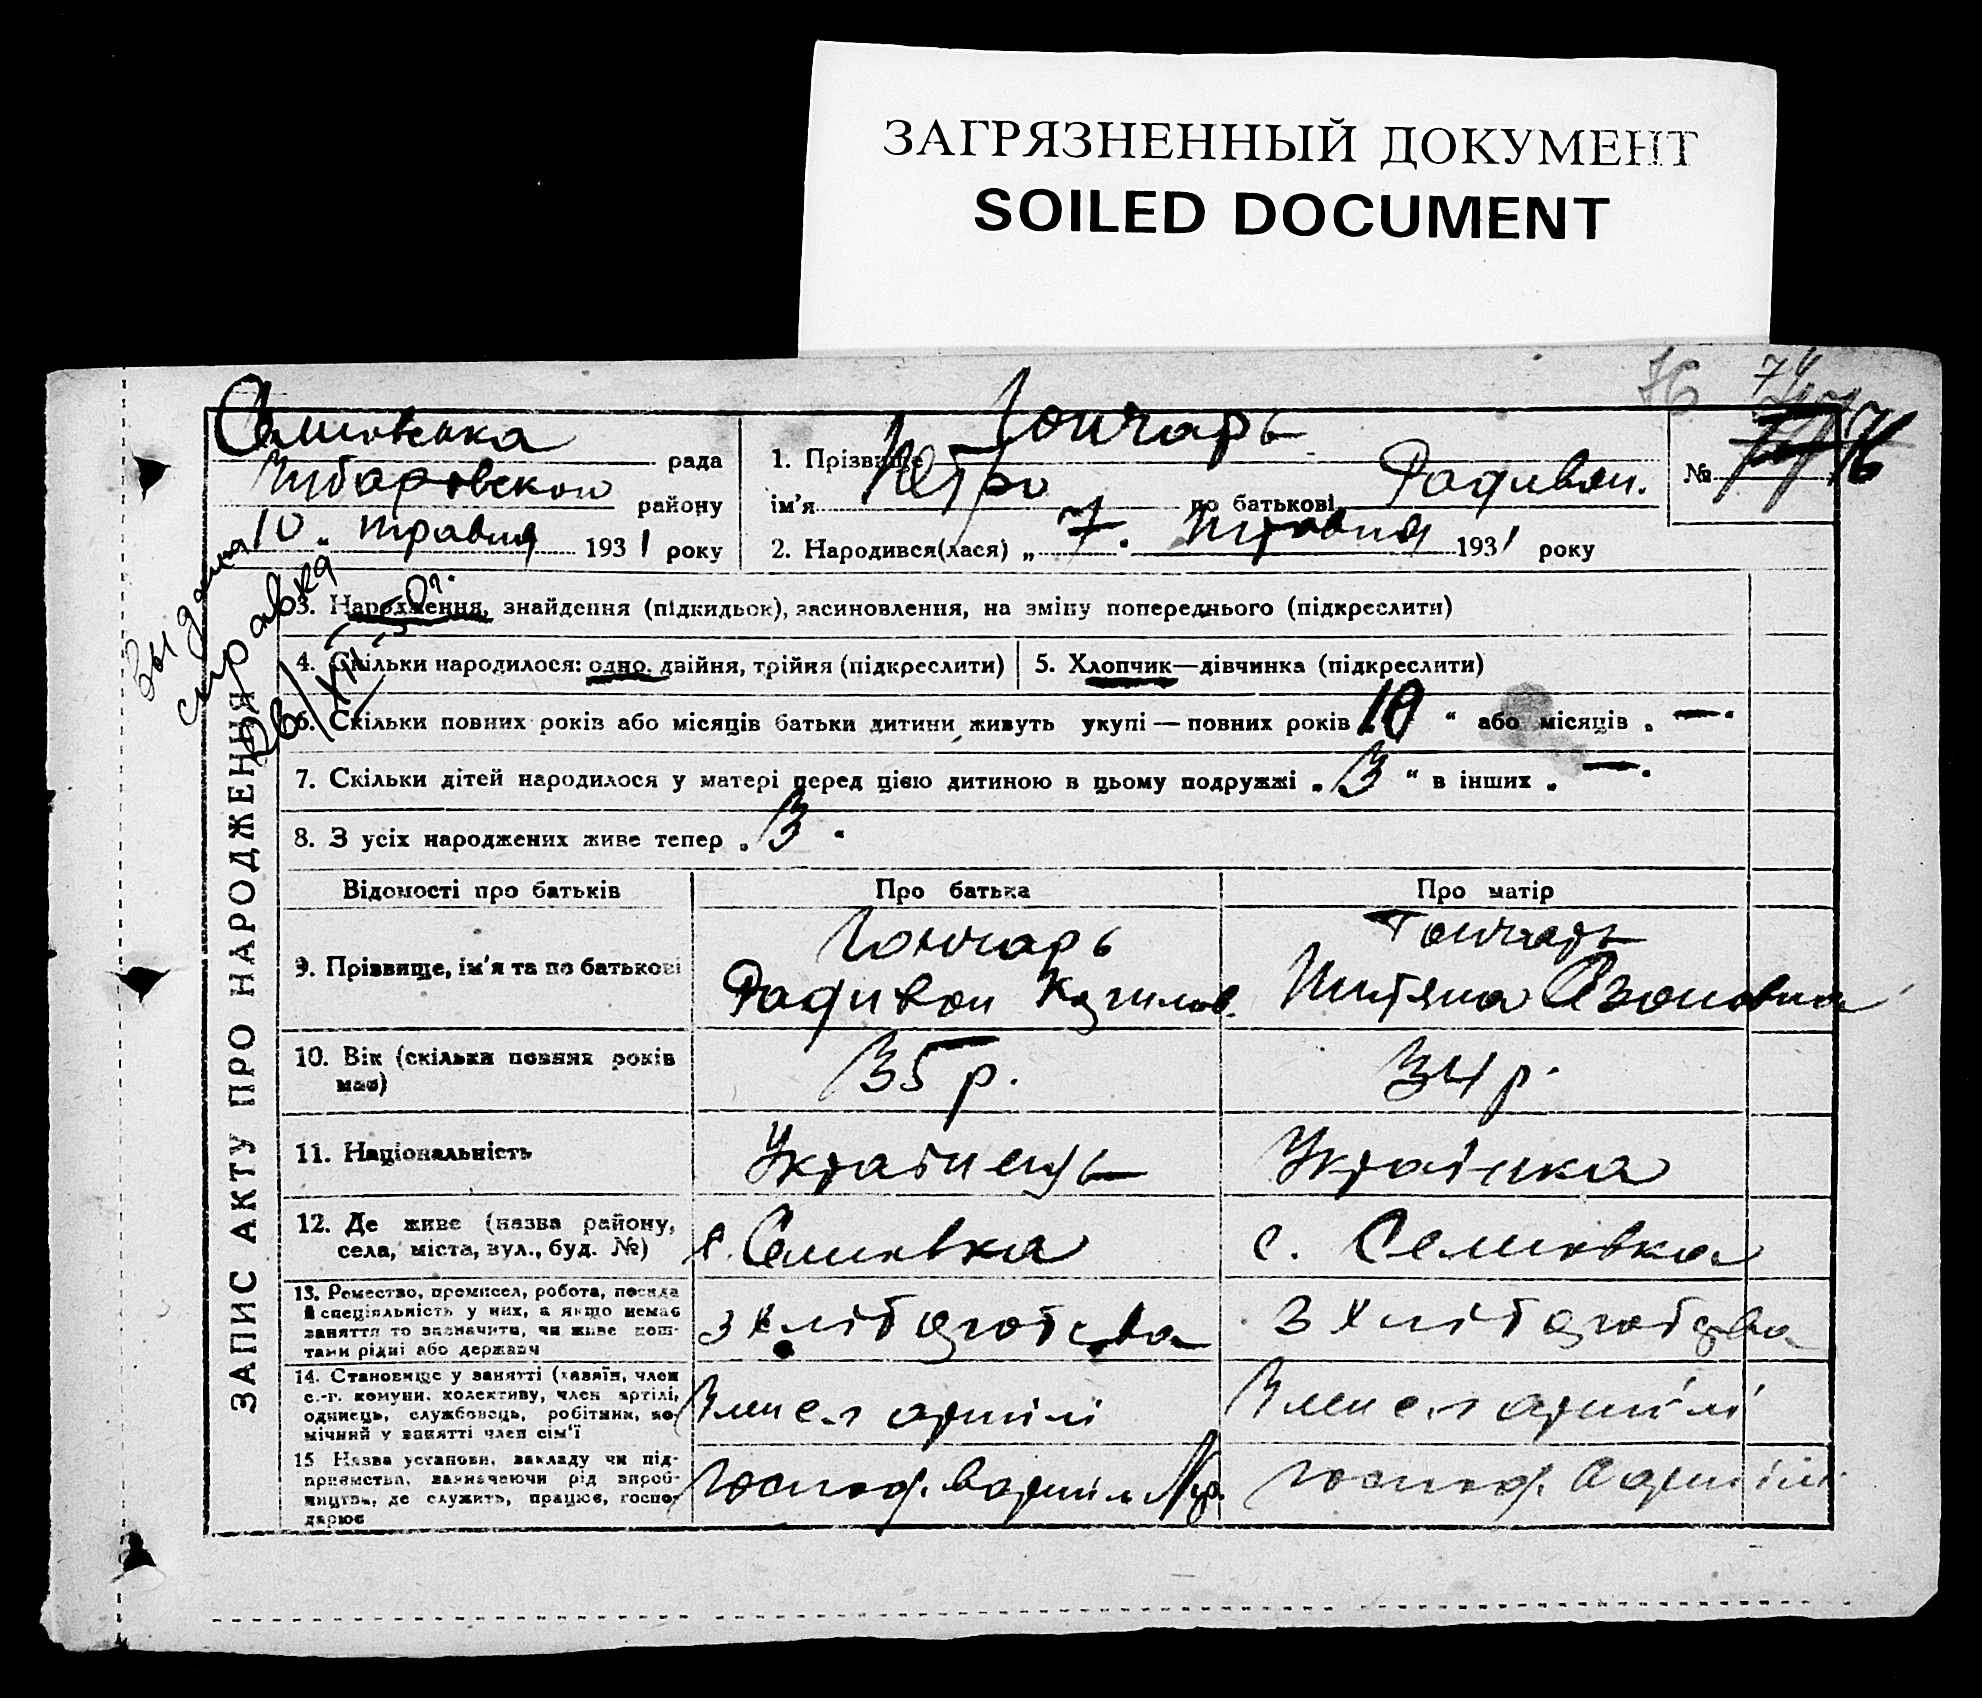 ЗАГРЯЗНЕННЫЙ ДОКУМЕНТ
SOILED DOCUMENT
76 74
Семиовська рада
району
10 „ травня 1931 року
1. Прізвище Гончарь
ім'я Петро по батькові Радивон.
2. Народився(лася) „ 7. травня 1931 року
№ 76
Выдана
справка
26/XII-50г.
ЗАПИС АКТУ ПРО НАРОДЖЕННЯ
3. Народження, знайдення (підкидьок), засиновлення, на зміну попереднього (підкреслити)
4. Скільки народилося: одно, двійня, трійня (підкреслити)
5. Хлопчик—дівчинка (підкреслити)
6. Скільки повних років або місяців батьки дитини живуть укупі — повних років 10 “ або місяців „ — “
7. Скільки дітей народилося у матері перед цією дитиною в цьому подружжі „ 3 “ в інших „ — “
8. З усіх народжених живе тепер „ 3 “
Відомості про батьків
Про батька
Про матір
9. Прізвище, ім'я та по батькові
Гончарь
Радивон
Гончарь
10. Вік (скільки повних років
має)
35 р.
34 р.
11. Національність
Українець
Українка
12. Де живе (назва району,
села, міста, вул., буд. №)
с. Семиовка
с. Семиовка
13. Ремество, промисел, робота, посада
й спеціяльність у них, а якщо немає
заняття то зазначити, чи живе кош-
тами рідні або держави
з хлібробства
з хлібробства
14. Становище у занятті (хазяїн, член
с.-г. комуни, колективу, член артілі,
одинець, службовець, робітник, по-
мічний у занятті член сім'ї
член артілі
член артілі
15 Назва установи, закладу чи під-
приємства, зазначаючи рід вироб-
ництва, де служить, працює, госпо-
дарює
господ. в артіл
господ. в артілі